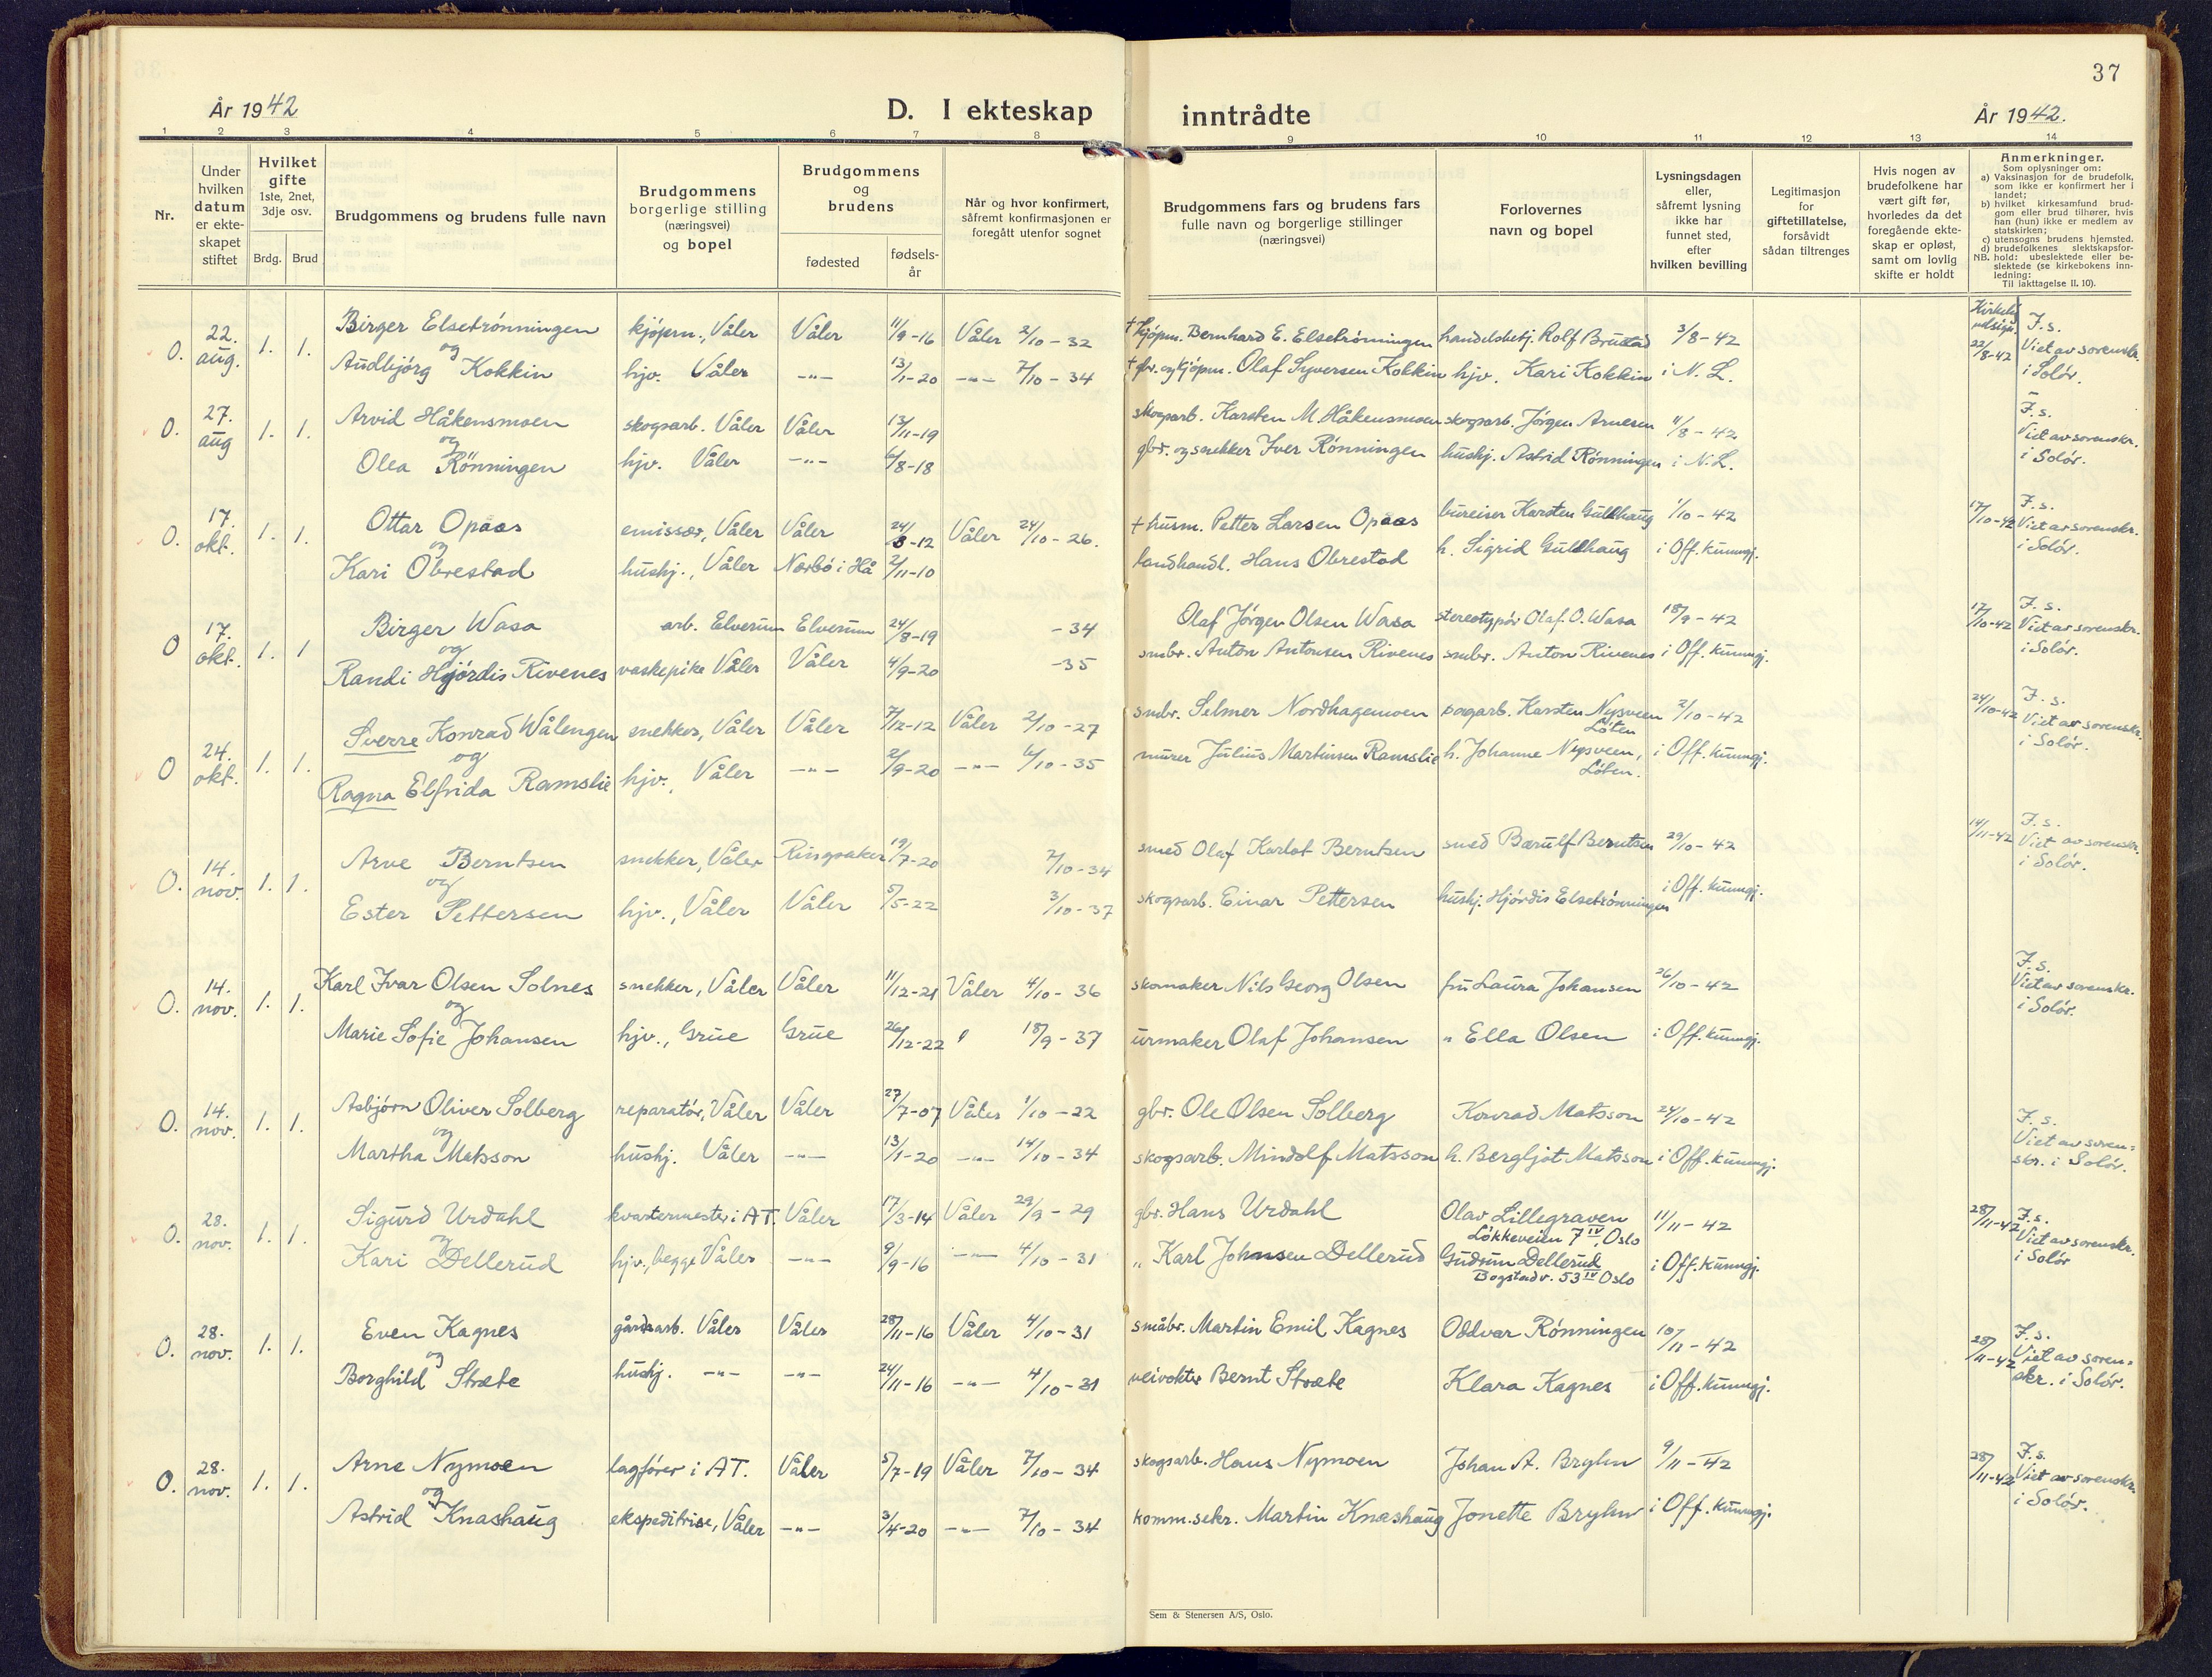 37
År 1942
D. I ekteskap inntrådte
År 1942.
1 2 3 4 5 6 7 8 9 10 11 12 13 14
Nr.
Under hvilken datum er ekteskapet stiftet
Hvilket gifte 1ste, 2net, 3dje osv.
Brdg. Brud
Brudgommens og brudens fulle navn
Brudgommens borgerlige stilling (næringsvei) og bopel
Brudgommens og brudens
fødested
fødselsår
Når og hvor konfirmert, såfremt konfirmasjonen er foregått utenfor sognet
Brudgommens fars og brudens fars fulle navn og borgerlige stillinger (næringsvei)
Forlovernes navn og bopel
Lysningsdagen eller, såfremt lysning ikke har funnet sted, efter hvilken bevilling
Legitimasjon for giftetillatelse, forsåvidt sådan tiltrenges
Hvis nogen av brudefolkene har vært gift før, hvorledes da det foregående ekteskap er opløst, samt om lovlig skifte er holdt
Anmerkninger.
Som oplysninger om:
a) Vaksinasjon for de brudefolk, som ikke er konfirmert her i landet;
b) hvilket kirkesamfund brudgom eller brud tilhører, hvis han (hun) ikke er medlem av statskirken;
c) utensogns brudens hjemsted.
d) brudefolkenes slektskapsforhold: ubeslektede eller beslektede (se kirkebokens innledning:
NB.
Til iakttagelse II. 10).
O. 22. aug. 1. 1. Birger Elsetrønningen kjøpm., Våler Våler 11/9-16 Våler 2/10-32 † kjøpm. Bernhard E. Elsetrønningen handelsbetj. Rolf Brustad 3/8-42 22/8-42 F.s. Viet av sorenskr. i Solør.
og
Audbjørg Kokkin hjv. Våler -"- 13/1-20 -"- 7/10-34 † gbr. og kjøpm. Olaf Syversen Kokkin hjv. Kari Kokkin i N. L.
O. 27. aug 1. 1. Arvid Håkensmoen skogsarb. Våler Våler 13/11-19 skogsarb. Karsten M. Håkensmoen skogsarb. Jørgen Arnesen 11/8-42 F.s. Viet av sorenskr. i Solør.
og
Olea Rønningen hjv. Våler -"- 6/8-18 gbr. og snekker Iver Rønningen hushj. Astrid Rønningen i N.L.
O. 17. okt. 1. 1. Ottar Opaas emissær, Våler Våler 24/8-12 Våler 24/10-26. † husm. Petter Larsen Opaas bureiser Karsten Guldhaug 1/10-42 17/10-42 F.s. Viet av sorenskr. i Solør.
og
Kari Obrestad hushj., Våler Nærbø i Hå 2/11-10 landhandl. Hans Obrestad h. Sigrid Guldhaug i Off. kunngj.
O 17. okt. 1. 1 Birger Wasa arb. Elverum Elverum 24/8-19 -34 Olaf Jørgen Olsen Wasa stereotypør Olaf O. Wasa 18/9-42 17/10-42 F.s. Viet av sorenskr. i Solør.
og
Randi Hjørdis Rivenes vaskepike Våler Våler 4/9-20 -35 smbr. Anton Antonsen Rivenes smbr. Anton Rivenes i Off. kunngj.
O 24. okt. 1. 1. Sverre Konrad Wålengen snekker, Våler Våler 7/12-12 Våler 2/10-27 smbr. Selmer Nordhagemoen Karsten Nysveen Løten 2/10-42 24/10-42 F.s. Viet av sorenskr. i Solør.
og
Ragna Elfrida Ramslie hjv., Våler -"- 2/9-20 -"- 6/10-35 murer Julius Martinsen Ramslie h. Johanne Nysveen, Løten. i Off. kunngj.
O. 14. nov. 1. 1. Arve Berntsen snekker, Våler Ringsaker 19/7-20 7/10-34 smed Olaf Karlot Berntsen smed Bærulf Berntsen 29/10-42 14/11-42 F.s. Viet av sorenskr. i Solør.
og
Ester Pettersen hjv., Våler Våler 5/5-22 3/10-37 skogsarb. Einar Pettersen hushj. Hjørdis Elsetrønningen i Off. kunngj.
O. 14. nov. 1. 1. Karl Ivar Olsen Solnes snekker, Våler Våler 11/12-21 Våler 4/10-36 skomaker Nils Georg Olsen fru Laura Johansen 26/10-42 F.s. Viet av sorenskr. i Solør.
og
Marie Sofie Johansen hjv., Grue Grue 26/12-22 " 18/9-37 urmaker Olaf Johansen " Ella Olsen i Off. kunngj.
O. 14. nov. 1. 1. Asbjørn Oliver Solberg reparatør, Våler Våler 27/7-07 Våler 1/10-22 gbr. Ole Olsen Solberg Konrad Matsson 24/10-42 F.s. Viet av sorenskr. i Solør.
og
Martha Matsson hushj. Våler -"- 13/1-20 -"- 14/10-34 skogsarb. Mindolf Matsson h. Bergljot Matsson i Off. kunngj.
O. 28. nov. 1. 1. Sigurd Urdahl kvartermester i AT. Våler 17/3-14 Våler 29/9-29 gbr. Hans Urdahl Olav Lillegraven Løkkeveien 7 IV Oslo 11/11-42 28/11-42 F.s. Viet av sorenskr. i Solør
og
Kari Dellerud hjv., begge Våler -"- 9/9-16 -"- 4/10-31 " Karl Johnsen Dellerud Gudrun Dellerud Bogstadv. 53 IV Oslo i Off. kunngj.
O. 28. nov. 1. 1. Even Kagnes gårdsarb. Våler Våler 28/11-16 Våler 4/10-31 småbr. Martin Emil Kagnes Oddvar Rønningen 10/11-42 28/11-42 F.s. Viet av sorenskr. i Solør.
og
Borghild Stræte hushj. -"- -"- 24/11-16 -"- 4/10-31 veivokter Bernt Stræte Klara Kagnes i Off. kunngj.
O. 28. nov. 1. 1. Arne Nymoen lagfører i AT. Våler 5/7-19 Våler 7/10-34 skogsarb. Hans Nymoen Johan A. Bryhn 9/11-42 28/11-42 F.s. Viet av sorenskr. i Solør.
og
Astrid Knashaug ekspeditrise, Våler -"- 3/4-20 -"- 7/10-34 komm.sekr. Martin Knashaug Jonette Bryhn i Off. kunngj.
Sem & Stenersen A/S, Oslo.